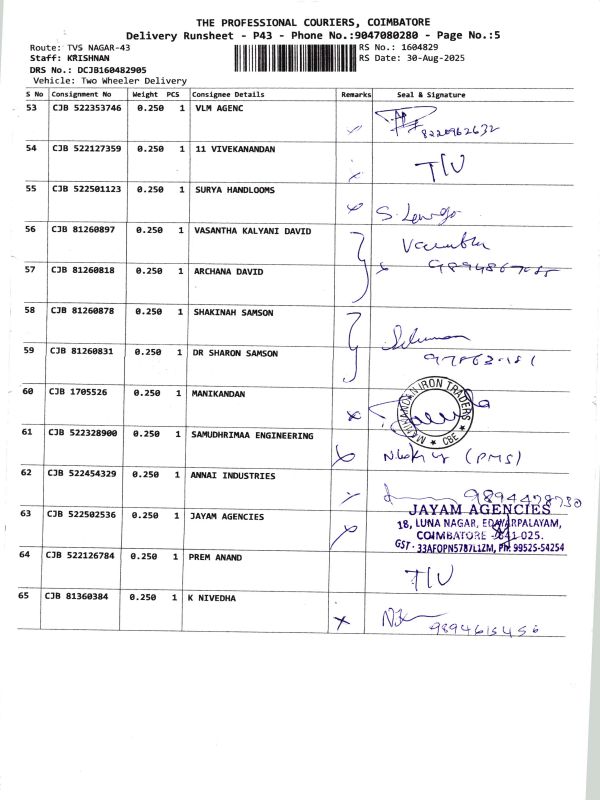 THE PROFESSIONAL COURIERS, COIMBATORE
Delivery Runsheet - P43 - Phone No.:9047080280 - Page No.:5
Route: TVS NAGAR-43 RS No.: 1604829
Staff: KRISHNAN RS Date: 30-Aug-2025
DRS No.: DCJB160482905
Vehicle: Two Wheeler Delivery
S No Consignment No Weight PCS Consignee Details Remarks Seal & Signature
53 CJB 522353746 0.250 1 VLM AGENC
8220962632
54 CJB 522127359 0.250 1 11 VIVEKANANDAN
T/U
55 CJB 522501123 0.250 1 SURYA HANDLOOMS
56 CJB 81260897 0.250 1 VASANTHA KALYANI DAVID
57 CJB 81260818 0.250 1 ARCHANA DAVID
58 CJB 81260878 0.250 1 SHAKINAH SAMSON
59 CJB 81260831 0.250 1 DR SHARON SAMSON
60 CJB 1705526 0.250 1 MANIKANDAN
MANIKANDAN IRON TRADERS
★ CBE ★
61 CJB 522328900 0.250 1 SAMUDHRIMAA ENGINEERING
(PMS)
62 CJB 522454329 0.250 1 ANNAI INDUSTRIES
9894478730
63 CJB 522502536 0.250 1 JAYAM AGENCIES
JAYAM AGENCIES
18, LUNA NAGAR, EDAYARPALAYAM,
COIMBATORE - 641 025.
GST - 33AFOPN5787L1ZM, Ph: 99525-54254
64 CJB 522126784 0.250 1 PREM ANAND
T/U
65 CJB 81360384 0.250 1 K NIVEDHA
9894615456